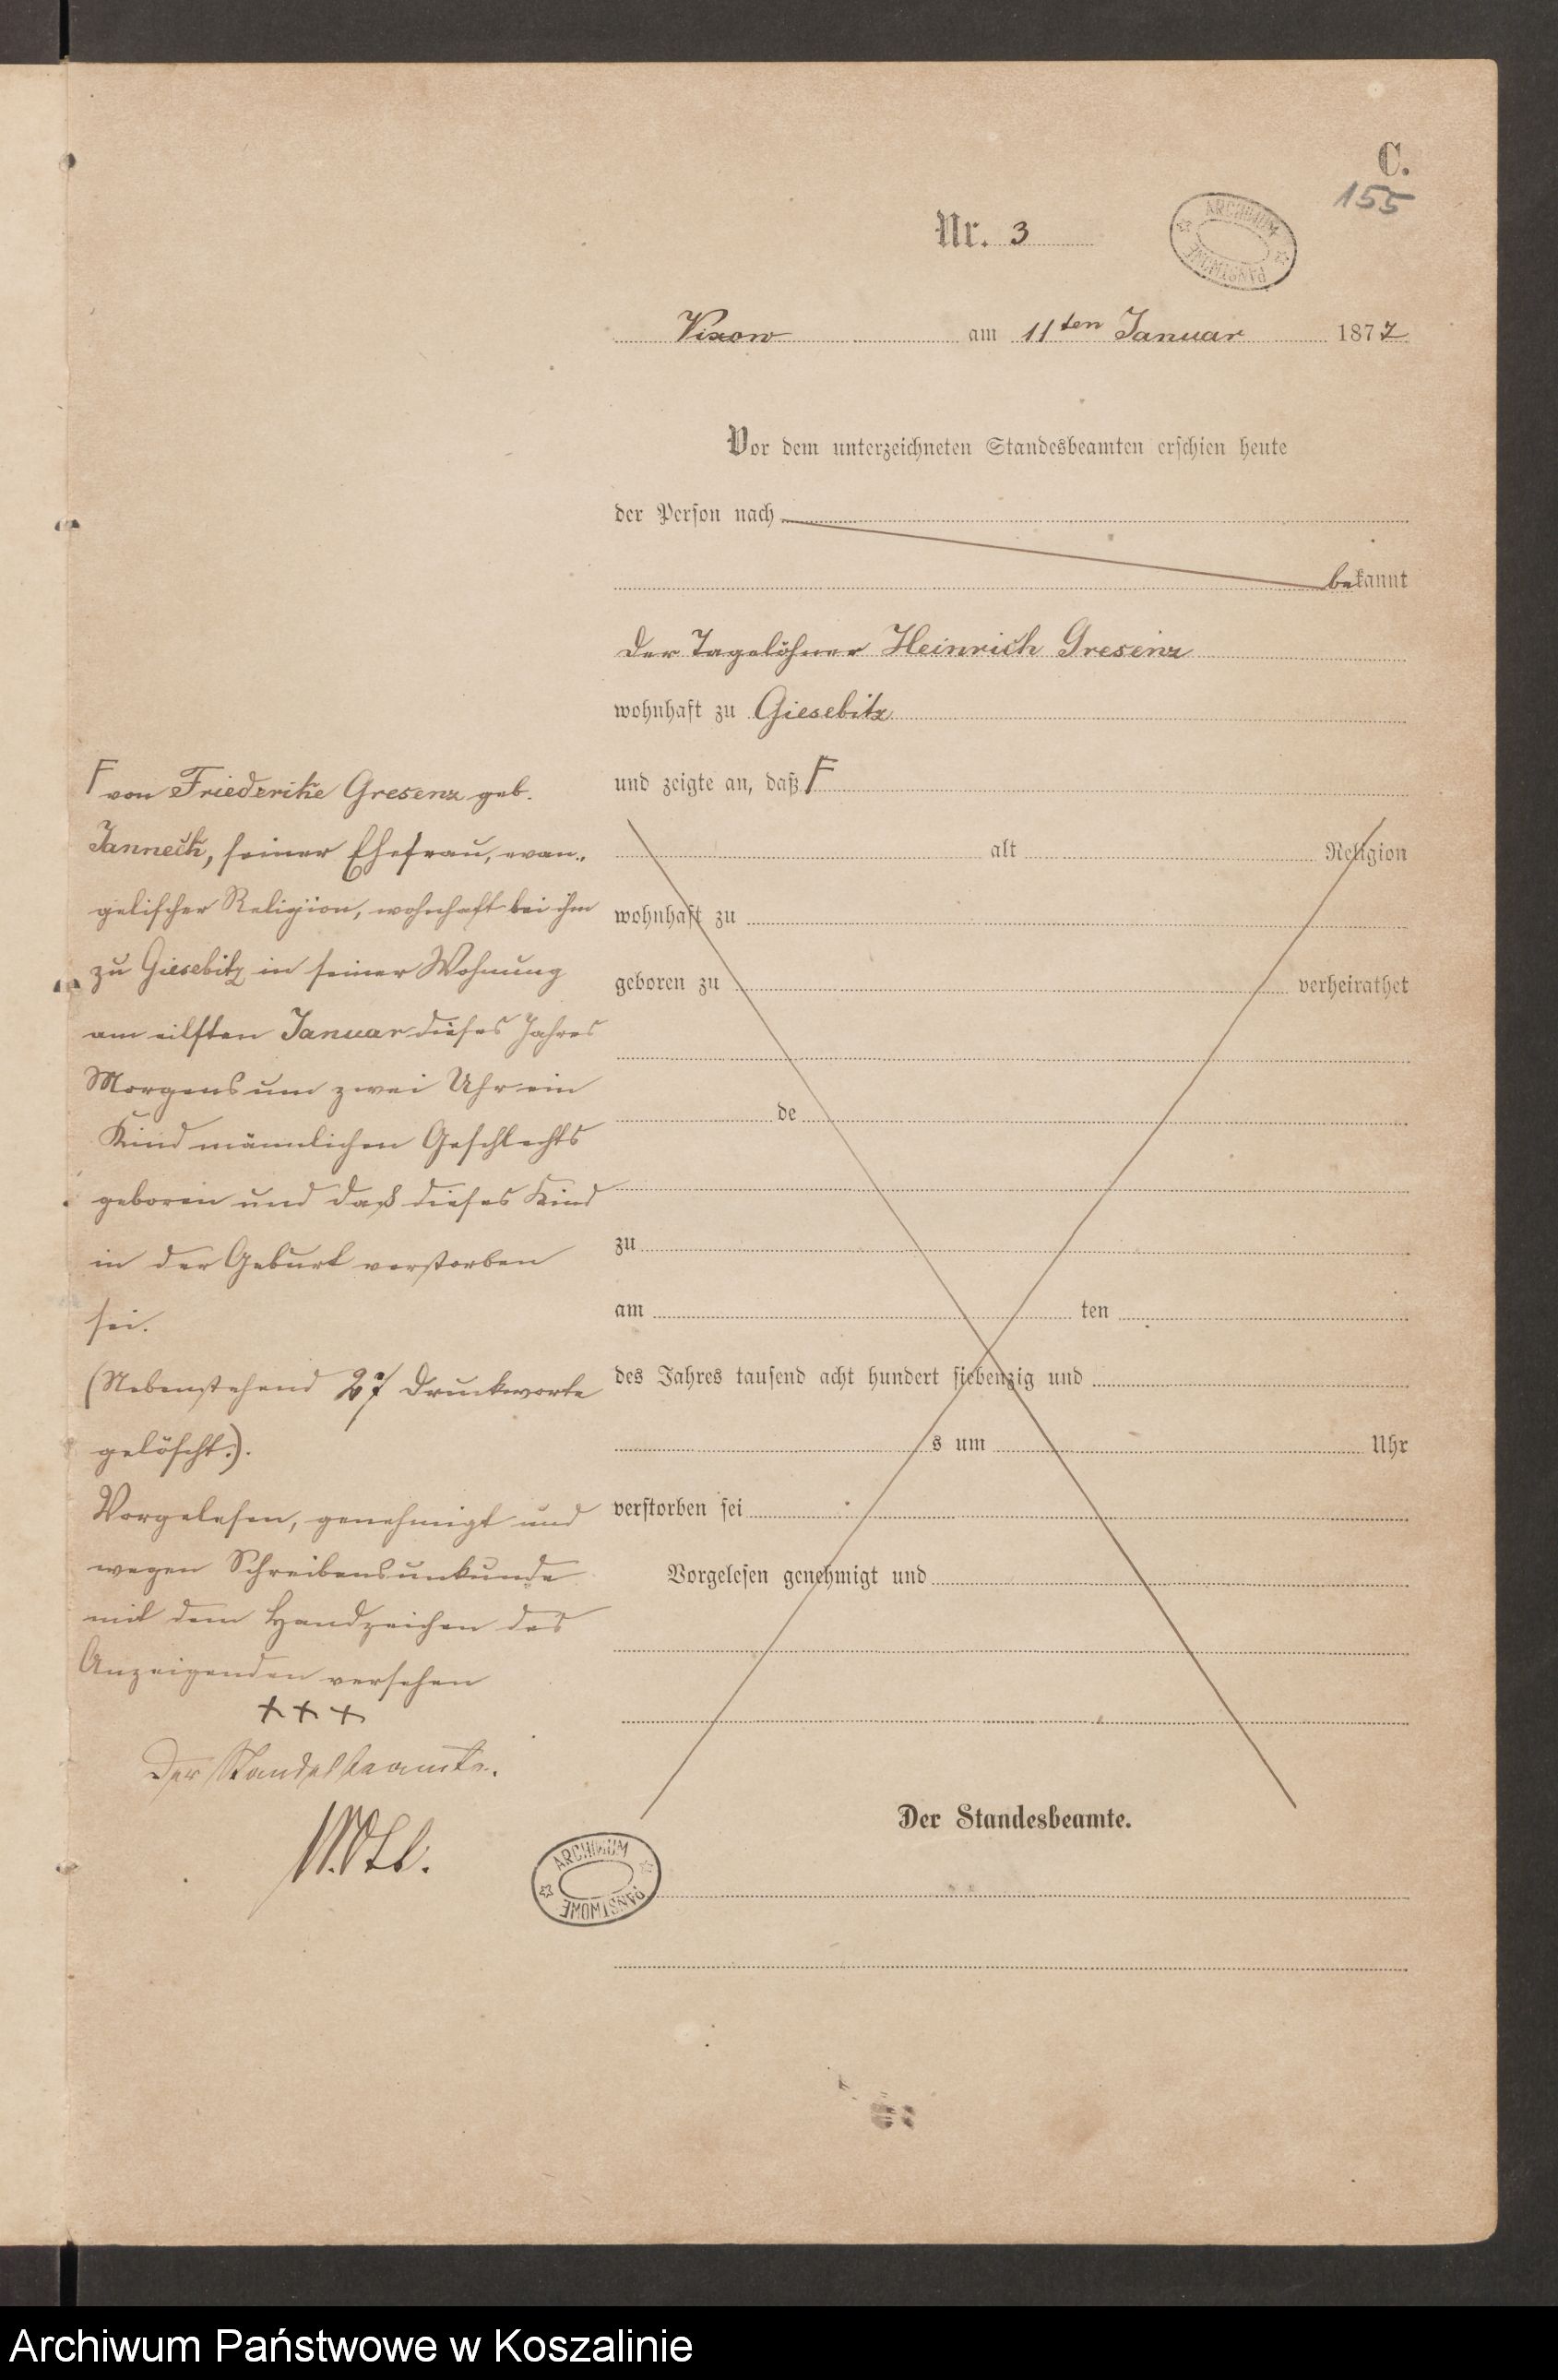 C.
155
Nr. 3
ARCHIWUM PAŃSTWOWE
Vixow am 11ten Januar 1877
Vor dem unterzeichneten Standesbeamten erschien heute
der Person nach
bekannt
der Tagelöhner Heinrich Gresenz
wohnhaft zu Giesebitz
und zeigte an, daß F
alt Religion
wohnhaft zu
geboren zu verheirathet
de
zu
am ten
des Jahres tausend acht hundert siebenzig und
s um Uhr
verstorben sei
Vorgelesen genehmigt und
Der Standesbeamte.
F von Friederike Gresenz geb.
Janneck, seiner Ehefrau, evan-
gelischer Religion, wohnhaft bei ihm
zu Giesebitz in seiner Wohnung
am eilften Januar dieses Jahres
Morgens um zwei Uhr ein
Kind männlichen Geschlechts
geboren und daß dieses Kind
in der Geburt verstorben
sei.
(Nebenstehend 27 Druckworte
gelöscht.).
Vorgelesen, genehmigt und
wegen Schreibensunkunde
mit dem Handzeichen des
Anzeigenden versehen
+++
Der Standesbeamte.
ARCHIWUM PAŃSTWOWE
Archiwum Państwowe w Koszalinie